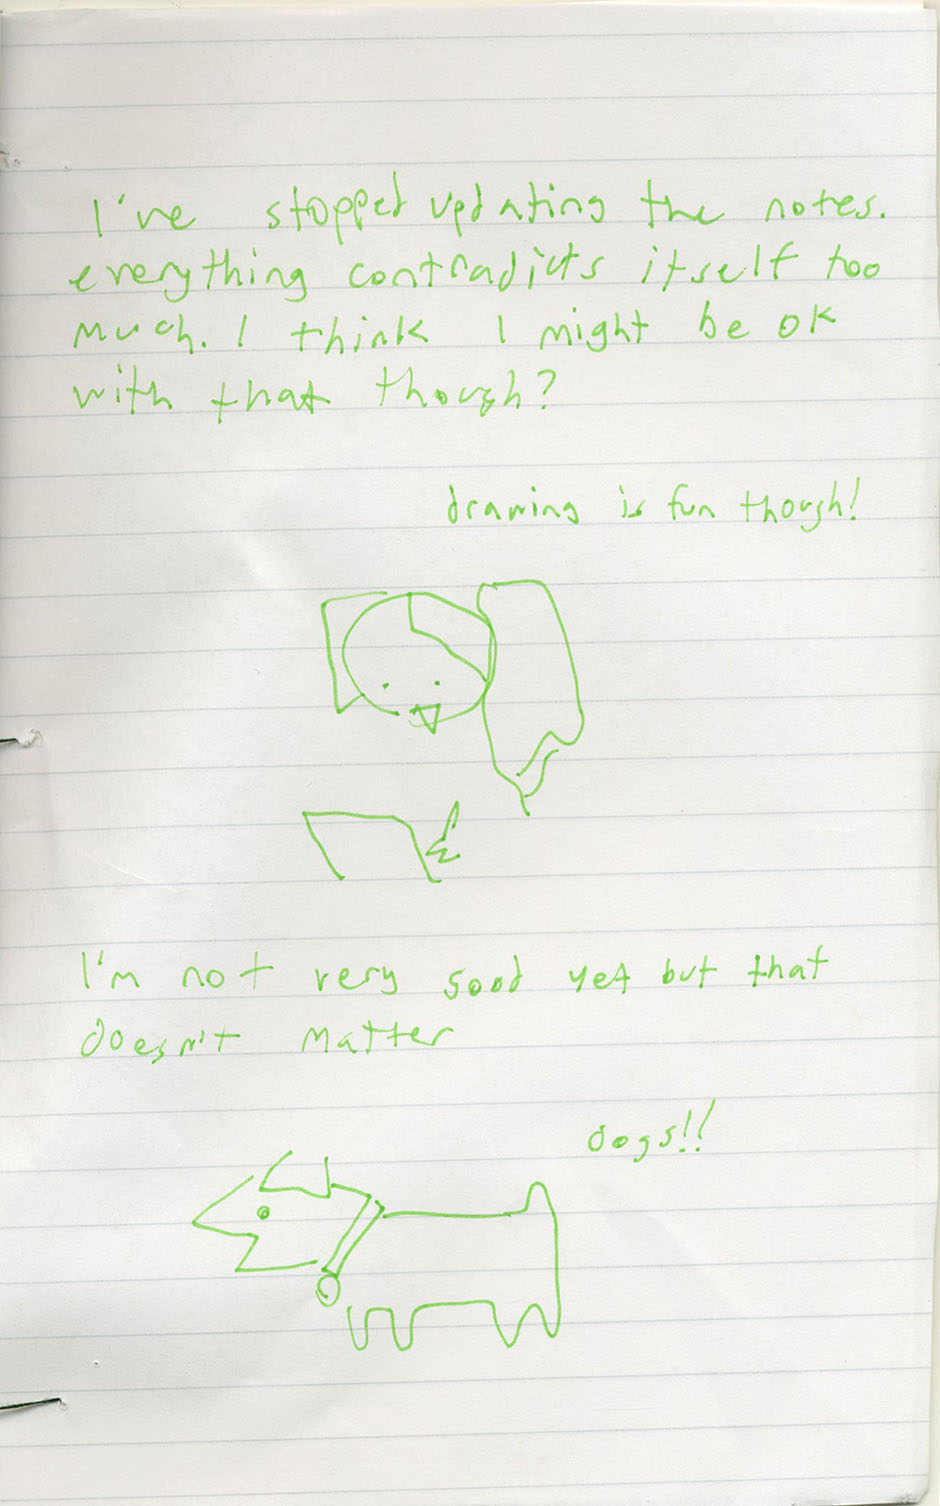 I've stopped updating the notes.
everything contradicts itself too
much. I think I might be ok
with that though?
drawing is fun though!
I'm not very good yet but that
doesn't matter
dogs!!